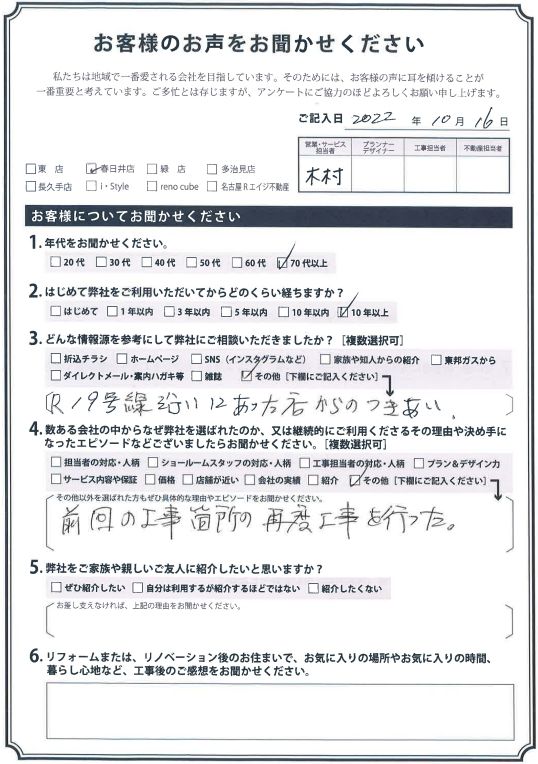 お客様のお声をお聞かせください
私たちは地域で一番愛される会社を目指しています。そのためには、お客様の声に耳を傾けることが
一番重要と考えています。ご多忙とは存じますが、アンケートにご協力のほどよろしくお願い申し上げます。
ご記入日 2022 年 10 月 16 日
営業・サービス担当者 プランナーデザイナー 工事担当者 不動産担当者
木村
□東 店 ☑春日井店 □緑 店 □多治見店
□長久手店 □i・Style □reno cube □名古屋Rエイジ不動産
お客様についてお聞かせください
1. 年代をお聞かせください。
□20代 □30代 □40代 □50代 □60代 ☑70代以上
2. はじめて弊社をご利用いただいてからどのくらい経ちますか？
□はじめて □1年以内 □3年以内 □5年以内 □10年以内 ☑10年以上
3. どんな情報源を参考にして弊社にご相談いただきましたか？［複数選択可］
□折込チラシ □ホームページ □SNS（インスタグラムなど） □家族や知人からの紹介 □東邦ガスから
□ダイレクトメール・案内ハガキ等 □雑誌 ☑その他［下欄にご記入ください］
R19号線沿いにあった店からのつきあい、
4. 数ある会社の中からなぜ弊社を選ばれたのか、又は継続的にご利用くださるその理由や決め手に
なったエピソードなどございましたらお聞かせください。［複数選択可］
□担当者の対応・人柄 □ショールームスタッフの対応・人柄 □工事担当者の対応・人柄 □プラン＆デザイン力
□サービス内容や保証 □価格 □店舗が近い □会社の実績 □紹介 ☑その他［下欄にご記入ください］
その他以外を選ばれた方もぜひ具体的な理由やエピソードをお聞かせください。
前回の工事箇所の再度工事を行った。
5. 弊社をご家族や親しいご友人に紹介したいと思いますか？
□ぜひ紹介したい □自分は利用するが紹介するほどではない □紹介したくない
お差し支えなければ、上記の理由をお聞かせください。
6. リフォームまたは、リノベーション後のお住まいで、お気に入りの場所やお気に入りの時間、
暮らし心地など、工事後のご感想をお聞かせください。